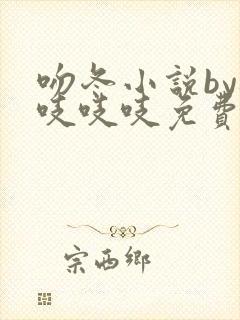 吻冬小説by
吱吱吱免費
宗西鄉